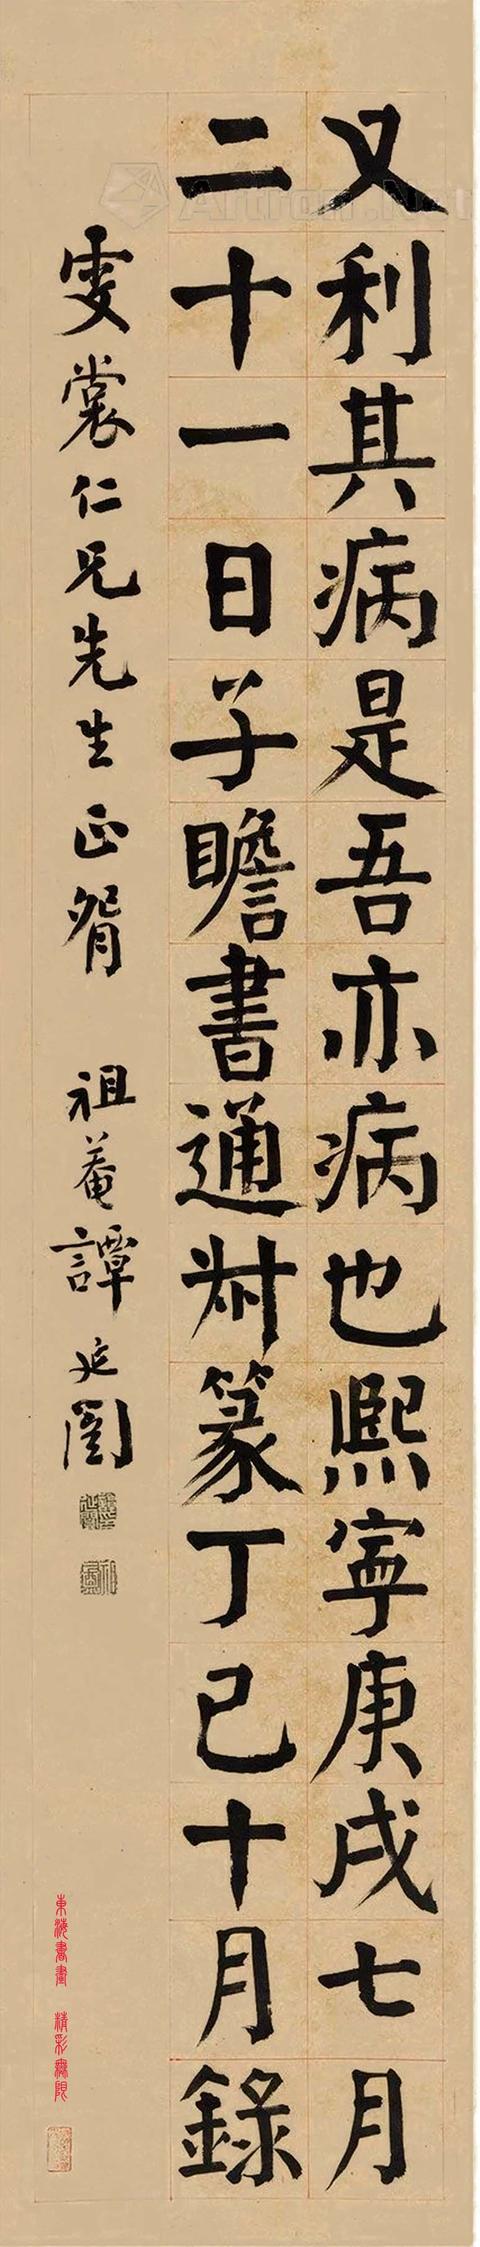 又利其病是吾亦病也熙寧庚戌七月
二十一日子瞻書通叔篆丁巳十月錄
雯裳仁兄先生正腕
祖菴譚延闓
東海書畫 精彩無限
Artron.Net